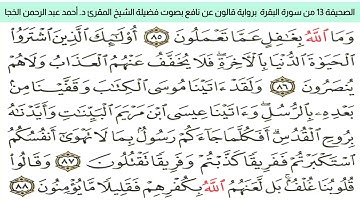 الصحيفة 13 من سورة البقرة برواية قالون عن نافع بصوت فضيلة الشيخ المقرئ د. أحمد عبد الرحمن الخجا
وَمَا اَللَّهُ بِغَٰفِلٍ عَمَّا تَعْمَلُونَۖ ٨٥ أُوْلَٰٓئِكَ اَلذِينَ اَشْتَرَوُاْ
اُلْحَيَوٰةَ اَلدُّنْيَا بِالْأَخِرَةِ فَلَا يُخَفَّفُ عَنْهُمُ اُلْعَذَابُ وَلَا هُمْ
يُنصَرُونَۖ ٨٦ وَلَقَدَ اٰتَيْنَا مُوسَي اَلْكِتَٰبَ وَقَفَّيْنَا مِنۢ
بَعْدِهِۦ بِالرُّسُلِ وَءَاتَيْنَا عِيسَي اَبْنَ مَرْيَمَ اَلْبَيِّنَٰتِ وَأَيَّدْنَٰهُ
بِرُوحِ اِلْقُدُسِۖ أَفَكُلَّمَا جَآءَكُمْ رَسُولُۢ بِمَا لَا تَهْوَىٰٓ أَنفُسُكُمُ
اُسْتَكْبَرْتُمْ فَفَرِيقاٗ كَذَّبْتُمْ وَفَرِيقاٗ تَقْتُلُونَۖ ٨٧ وَقَالُواْ
قُلُوبُنَا غُلْفُۢۖ بَل لَّعَنَهُمُ اُللَّهُ بِكُفْرِهِمْ فَقَلِيلاٗ مَّا يُؤْمِنُونَۖ ٨٨